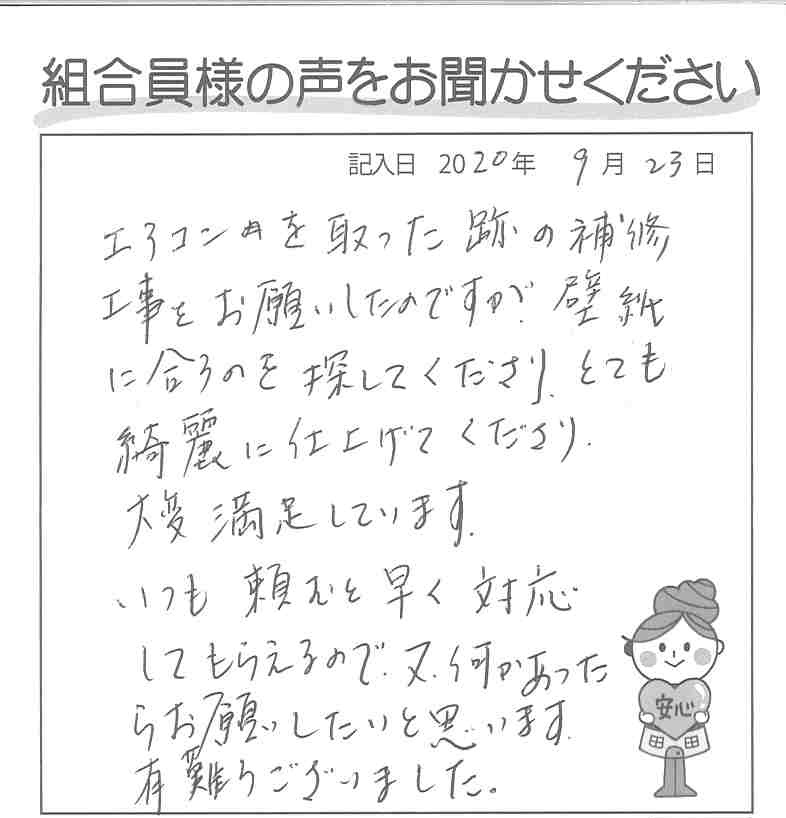 組合員様の声をお聞かせください
記入日 2020年 9月 23日
エアコン#を取った跡の補修
工事をお願いしたのですが、壁紙
に合うのを探してくださり、とても
綺麗に仕上げてくださり、
大変満足しています。
いつも頼むと早く対応
してもらえるので、又、何かあった
らお願いしたいと思います。
有難うございました。
安心